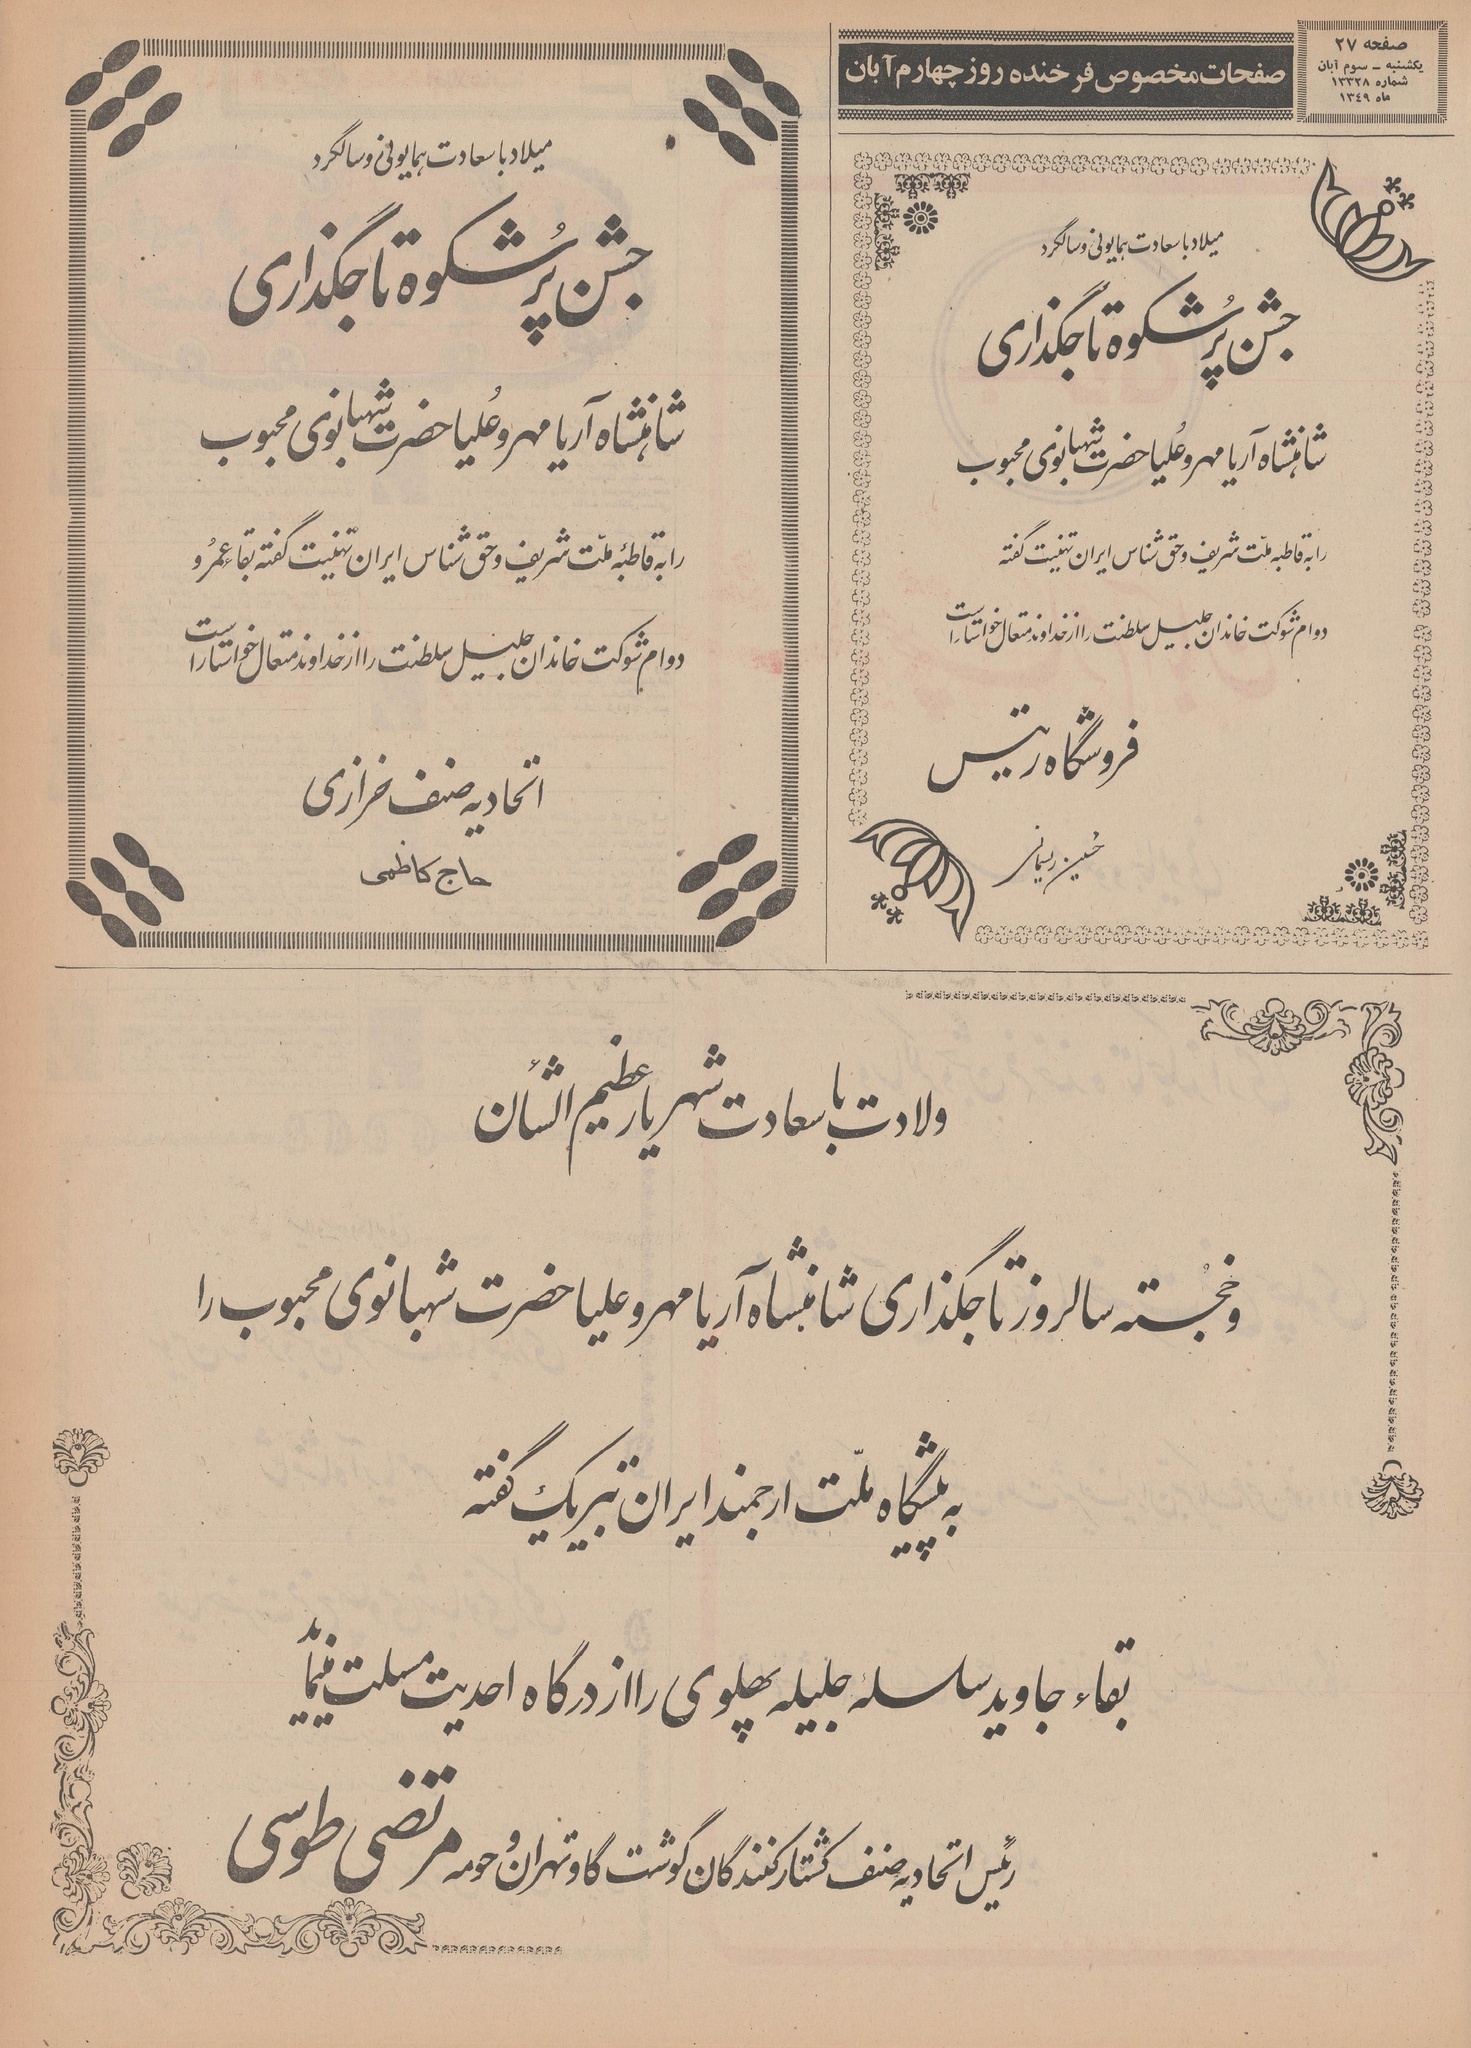 صفحه ۲۷
یکشنبه - سوم آبان
ماه ۱۳۴۹
شماره ۱۳۳۲۸
صفحات مخصوص فرخنده روز چهارم آبان
میلاد با سعادت همایونی و سالگرد
جشن پرُشکوه تاجگذاری
شاهنشاه آریا مهر و عُلیا حضرت شهبانوی محبوب
را به قاطبه ملّت شریف و حق شناس ایران تهنیت گفته
دوام شوکت خاندان جلیل سلطنت را از خداوند متعال خواستار است
فروشگاه رتیس
حُسین ریسمانی
میلاد با سعادت همایونی و سالگرد
جشن پرُشکوه تاجگذاری
شاهنشاه آریا مهر و عُلیا حضرت شهبانوی محبوب
را به قاطبهٔ ملّت شریف و حق شناس ایران تهنیت گفته بقاء عمرُ و
دوام شوکت خاندان جلیل سلطنت را از خداوند متعال خواستار است
اتحادیه صنف خرازی
حاج کاظمی
ولادت با سعادت شهریار عظیم الشأن
و خجُسته سالروز تاجگذاری شاهنشاه آریا مهر و علیا حضرت شهبانوی محبوب را
به پیشگاه ملّت ارجمند ایران تبریک گفته
بقاء جاوید سلسلهٔ جلیله پهلوی را از درگاه احدیت مسئلت مینماید
رئیس اتحادیه صنف کشتار کنندگان گوشت گاو تهران و حومه مرتضی طوسی